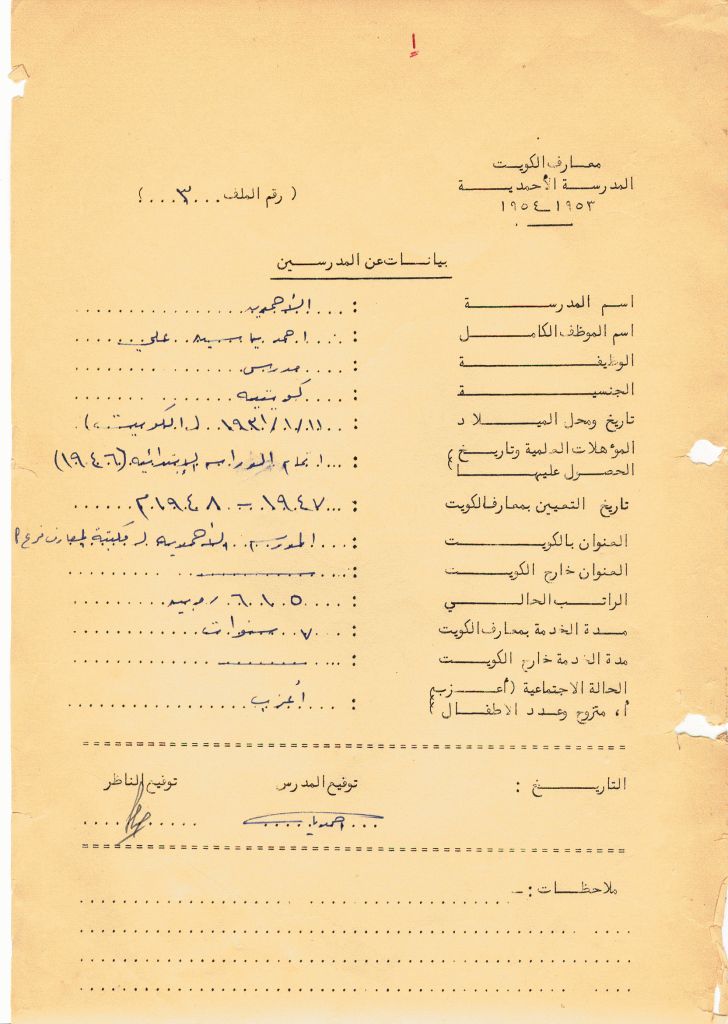 ١
معارف الكويت
المدرسة الأحمدية
١٩٥٣ـ١٩٥٤
( رقم الملف ...٣... )
بيانات عن المدرسين
اسم المدرسة : الأحمدية
اسم الموظف الكامل : احمد ياسين علي
الوظيفة : مدرس
الجنسية : كويتيه
تاريخ ومحل الميلاد : ١٩٣١/١/١١ ( الكويت )
المؤهلات العلمية وتاريخ الحصول عليها : اتمام الدراسه الإبتدائيه (١٩٤٦)
تاريخ التعيين بمعارف الكويت : ١٩٤٧ - ١٩٤٨ م
العنوان بالكويت : المدرسه الأحمديه / مكتبة المعارف فرع
العنوان خارج الكويت : ــــــ
الراتب الحالي : ٦٠٥ روبيه
مدة الخدمة بمعارف الكويت : ٧ سنوات
مدة الخدمة خارج الكويت : ــــــ
الحالة الاجتماعية (أعزب أ، متزوج وعدد الاطفال) : أعزب
التاريخ : توقيع المدرس توقيع الناظر
احمد ياسين
ملاحظات :ـ